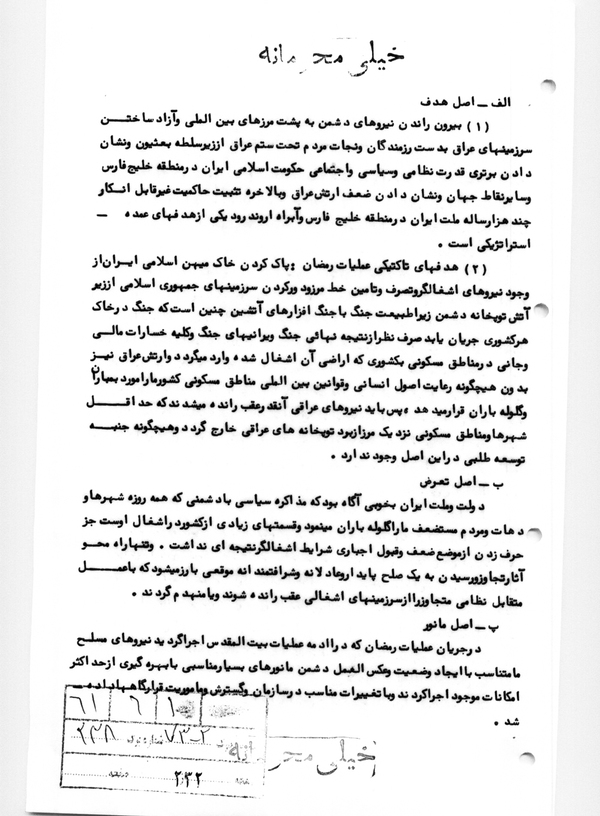 خیلی محرمانه
الف ــ اصل هدف
(۱) بیرون راندن نیروهای دشمن به پشت مرزهای بین المللی وآزاد ساختن
سرزمینهای عراق بدست رزمندگان ونجات مردم تحت ستم عراق اززیرسلطه بعثیون ونشان
دادن برتری قدرت نظامی وسیاسی واجتماعی حکومت اسلامی ایران درمنطقه خلیج فارس
وسایرنقاط جهان ونشان دادن ضعف ارتش عراق وبالاخره تثبیت حاکمیت غیرقابل انکار
چند هزارساله ملت ایران درمنطقه خلیج فارس وآبراه اروند رود یکی ازهدفهای عمده ــ
استراتژیکی است .
(۲) هدفهای تاکتیکی عملیات رمضان : پاک کردن خاک میهن اسلامی ایران از
وجود نیروهای اشغالگروتصرف وتامین خط مرزود ورکردن سرزمینهای جمهوری اسلامی اززیر
آتش توپخانه دشمن زیراطبیعت جنگ باجنگ افزارهای آتشین چنین است که جنگ درخاک
هرکشوری جریان یابد صرف نظرازنتیجه نهائی جنگ ویرانیهای جنگ وکلیه خسارات مالی
وجانی درمناطق مسکونی بکشوری که اراضی آن اشغال شده وارد میگرد د وارتش عراق نیز
بدون هیچگونه رعایت اصول انسانی وقوانین بین المللی مناطق مسکونی کشورمارامورد بمباران
وگلوله باران قرارمیدهد . پس باید نیروهای عراقی آنقد رعقب رانده میشدند که حداقل
شهرهاومناطق مسکونی نزدیک مرزازبرد توپخانه های عراقی خارج گردد وهیچگونه جنبه
توسعه طلبی دراین اصل وجود ندارد .
ب ــ اصل تعرض
دولت وملت ایران بخوبی آگاه بود که مذاکره سیاسی بادشمنی که همه روزه شهرهاو
دهات ومردم مستضعف ماراگلوله باران مینمود وقسمتهای زیادی ازکشورد راشغال اوست جز
حرف زدن ازموضع ضعف وقبول اجباری شرایط اشغالگرنتیجه ای نداشت . وتنهاراه محو
آثارتجاوزورسیدن به یک صلح پایدارو عادلانه وشرافتمندانه موقعی بارزمیشود که باعمل
متقابل نظامی متجاوزراازسرزمینهای اشغالی عقب رانده شوند ویامنهدم گردند .
پ ــ اصل مانور
درجریان عملیات رمضان که درادامه عملیات بیت المقدس اجراگردید نیروهای مسلح
مامتناسب باایجاد وضعیت وعکس العمل دشمن مانورهای بسیارمناسبی بابهره گیری ازحداکثر
امکانات موجود اجراکردند وباتغییرات مناسب درسازمان وگسترش وماموریت قرارگاهها داده ــ
شد .
۶۱ ۶ ۱
۷۳-۲
۲۳۲
خیلی محرمانه